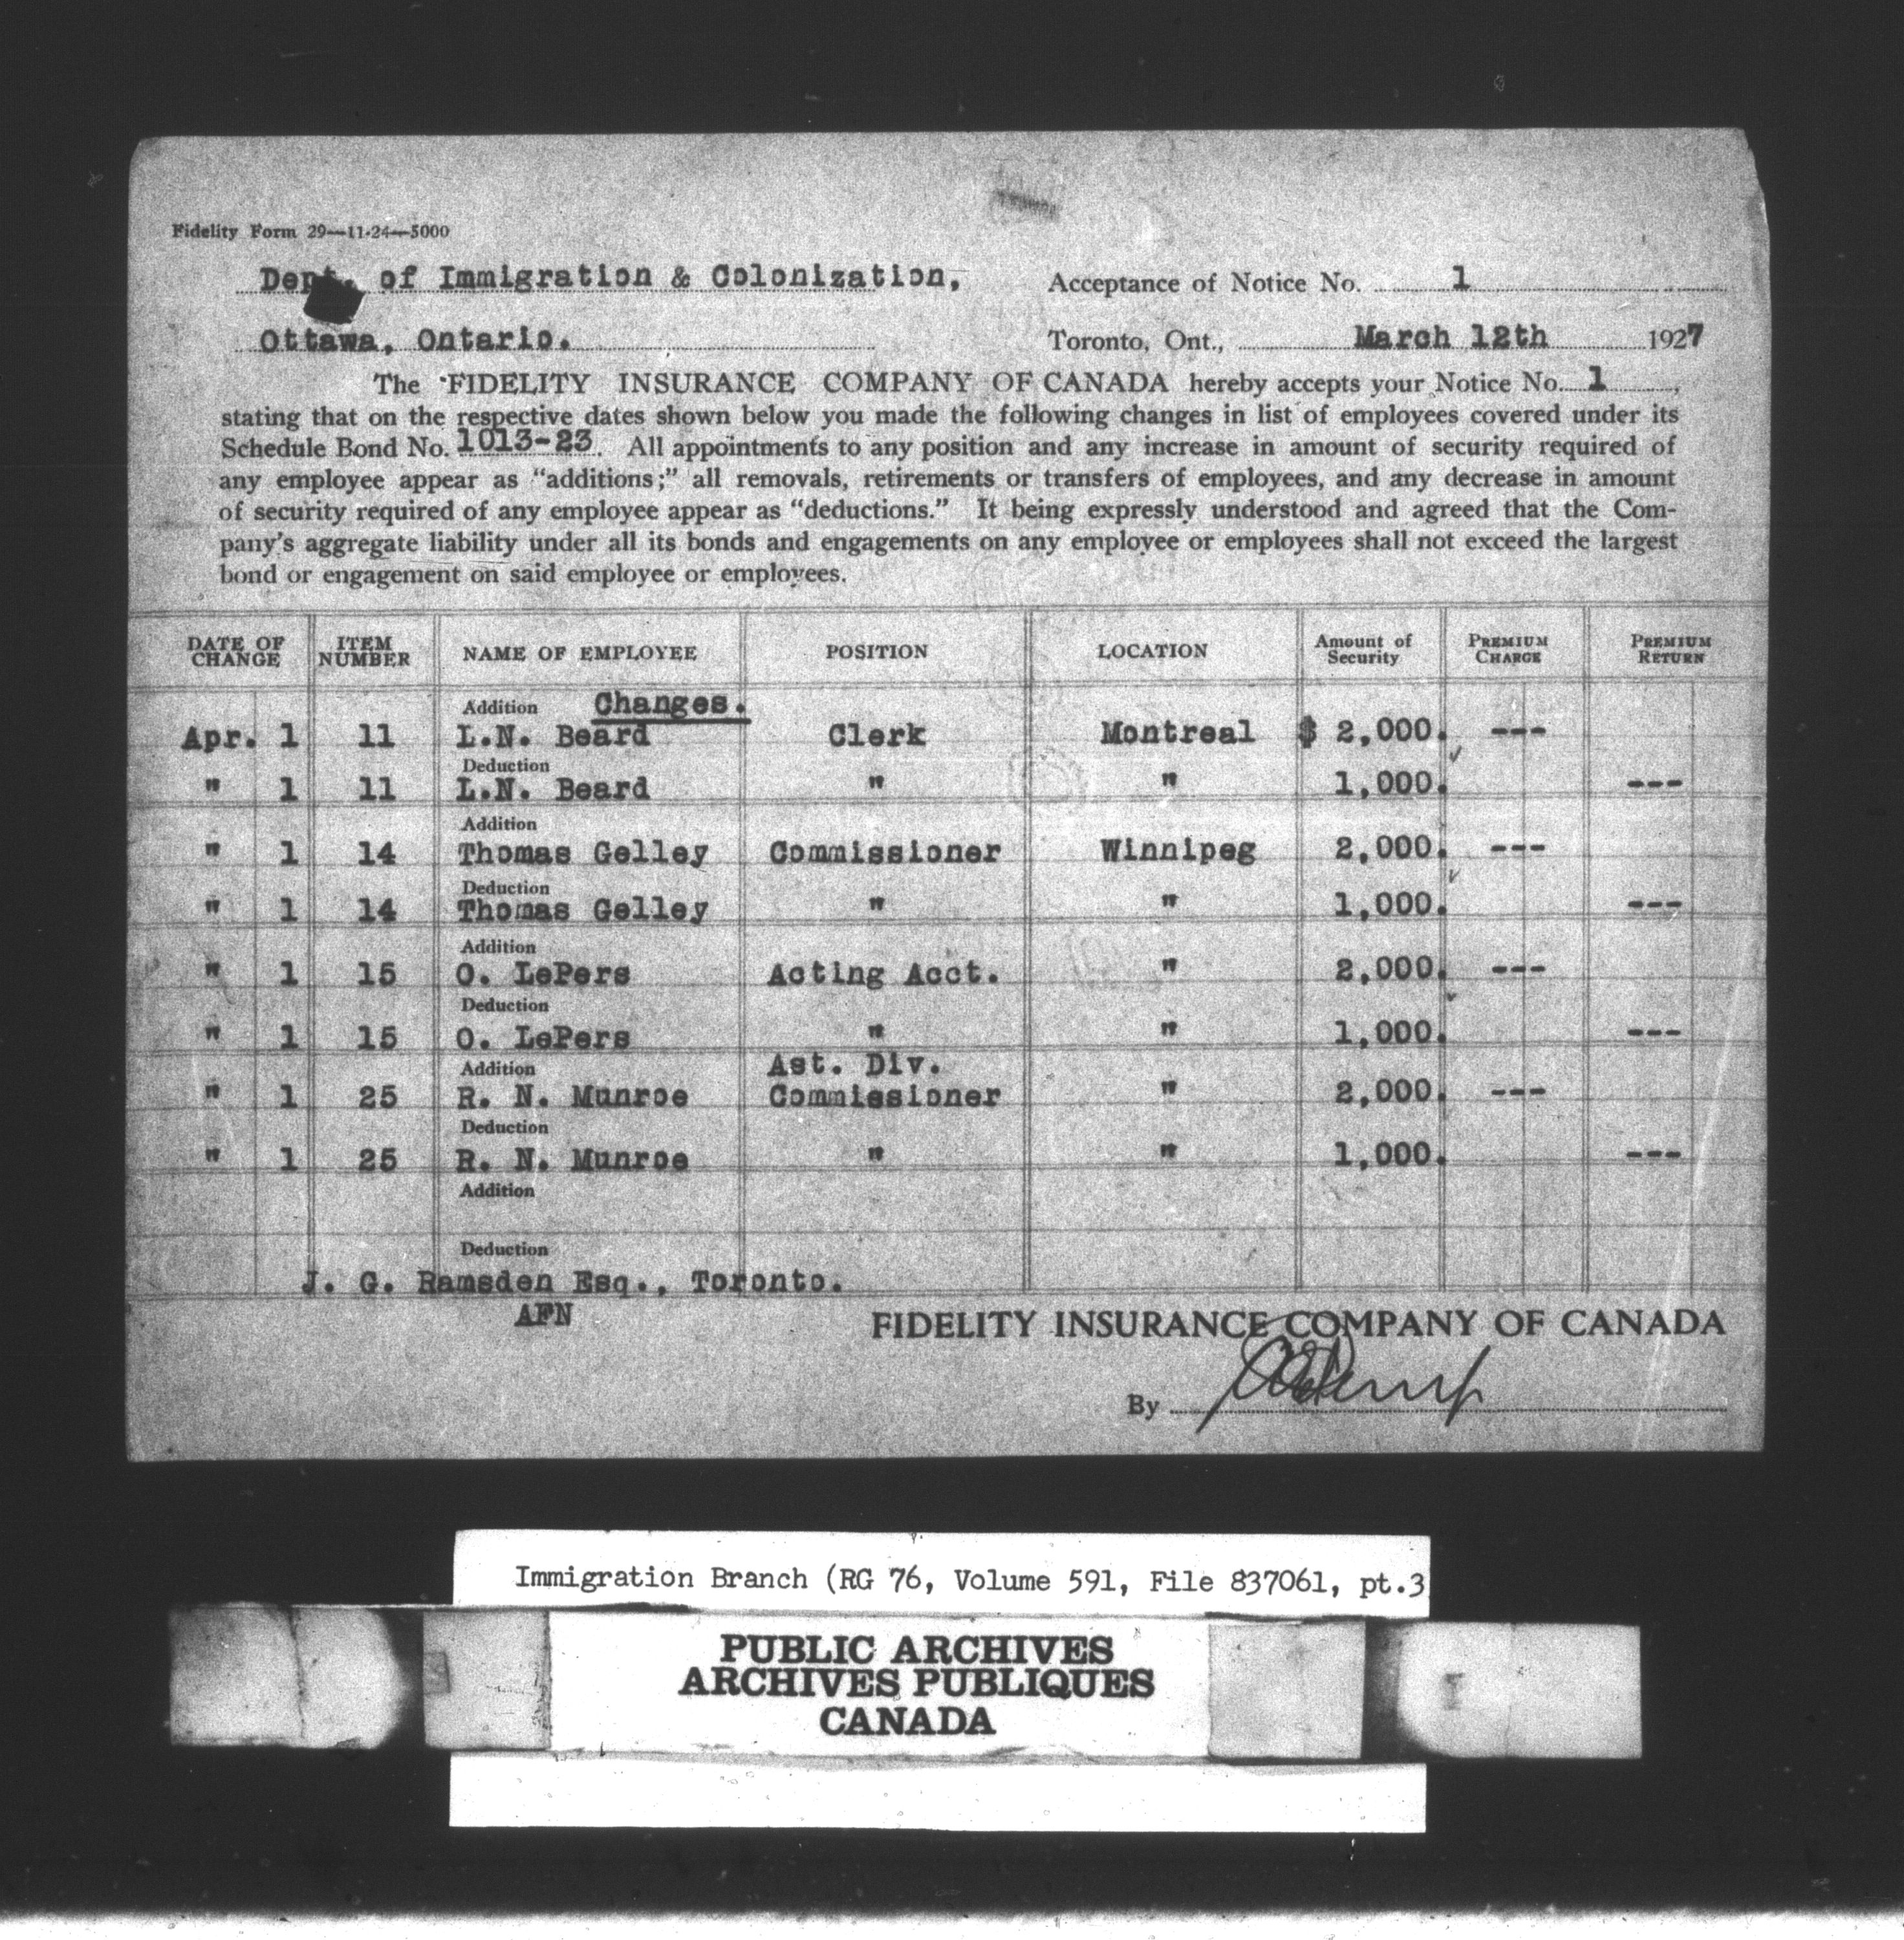 Fidelity Form 29—11-24—5000
Dept. of Immigration & Colonization,
Acceptance of Notice No. 1
Ottawa, Ontario.
Toronto, Ont., March 12th 1927
The FIDELITY INSURANCE COMPANY OF CANADA hereby accepts your Notice No. 1,
stating that on the respective dates shown below you made the following changes in list of employees covered under its
Schedule Bond No. 1013-23. All appointments to any position and any increase in amount of security required of
any employee appear as “additions;” all removals, retirements or transfers of employees, and any decrease in amount
of security required of any employee appear as “deductions.” It being expressly understood and agreed that the Com-
pany's aggregate liability under all its bonds and engagements on any employee or employees shall not exceed the largest
bond or engagement on said employee or employees.
DATE OF CHANGE ITEM NUMBER NAME OF EMPLOYEE POSITION LOCATION Amount of Security PREMIUM CHARGE PREMIUM RETURN
Addition Changes.
Apr. 1 11 L.N. Beard Clerk Montreal $ 2,000. ---
Deduction
" 1 11 L.N. Beard " " 1,000. ---
Addition
" 1 14 Thomas Gelley Commissioner Winnipeg 2,000. ---
Deduction
" 1 14 Thomas Gelley " " 1,000. ---
Addition
" 1 15 O. LePers Acting Acct. " 2,000. ---
Deduction
" 1 15 O. LePers " " 1,000. ---
Addition Ast. Div.
" 1 25 R. N. Munroe Commissioner " 2,000. ---
Deduction
" 1 25 R. N. Munroe " " 1,000. ---
Addition
Deduction
J. G. Ramsden Esq., Toronto.
AFN
FIDELITY INSURANCE COMPANY OF CANADA
By
Immigration Branch (RG 76, Volume 591, File 837061, pt.3
PUBLIC ARCHIVES
ARCHIVES PUBLIQUES
CANADA